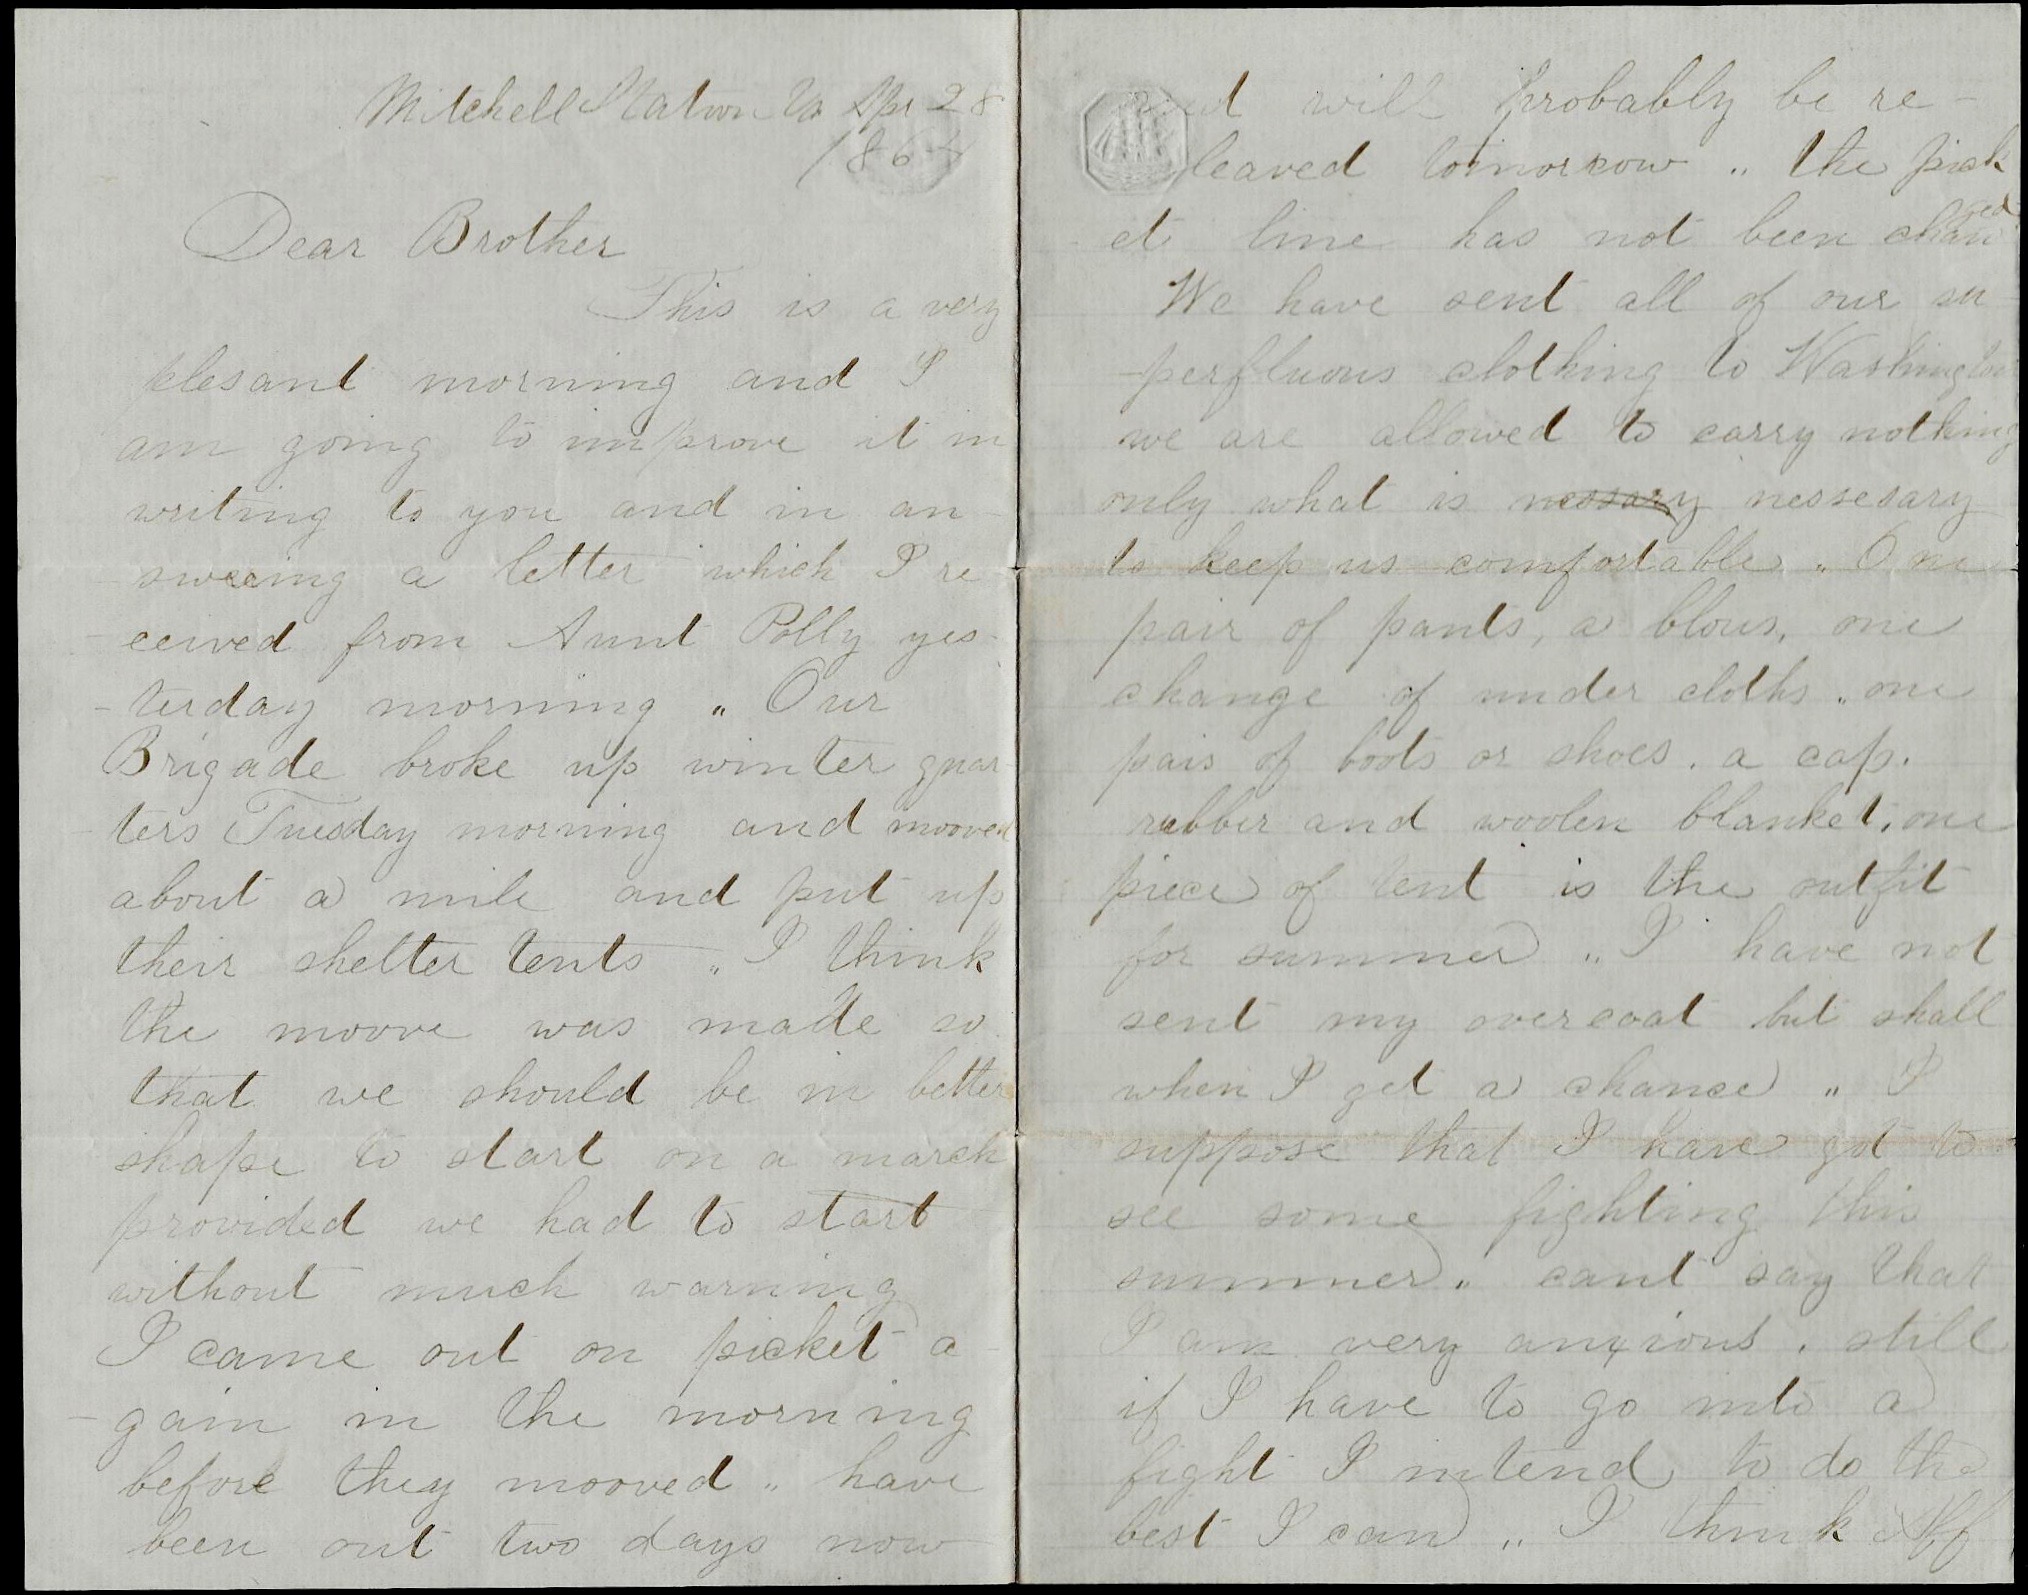 Mitchell Station Va Apr 28
1864
Dear Brother
This is a very
plesant morning and I
am going to improve it in
writing to you and in an-
sweing a letter which I re-
-ceived from Aunt Polly yes-
-terday morning " Our
Brigade broke up winter quar-
-ters Tuesday morning and mooved
about a mile and put up
their shelter tents " I think
the moove was made so
that we should be in better
shape to start on a march
provided we had to start
without much warning
I came out on picket a-
-gain in the morning
before they mooved " have
been out two days now
and will probably be re-
leaved tomorrow " the pick
et line has not been
We have sent all of our su-
-perfluous clothing to Washington
we are allowed to carry nothing
only what is nessary nessesary
to keep us comfortable " One
pair of pants, a blous, one
change of under cloths " one
pair of boots or shoes. a cap.
rubber and woolen blanket, one
piece of tent is the outfit
for summer " I have not
sent my overcoat but shall
when I get a chance " I
suppose that I have got to
see some fighting this
summer " cant say that
I am very anxious. still
if I have to go into a
fight I intend to do the
best I can " I think Alf